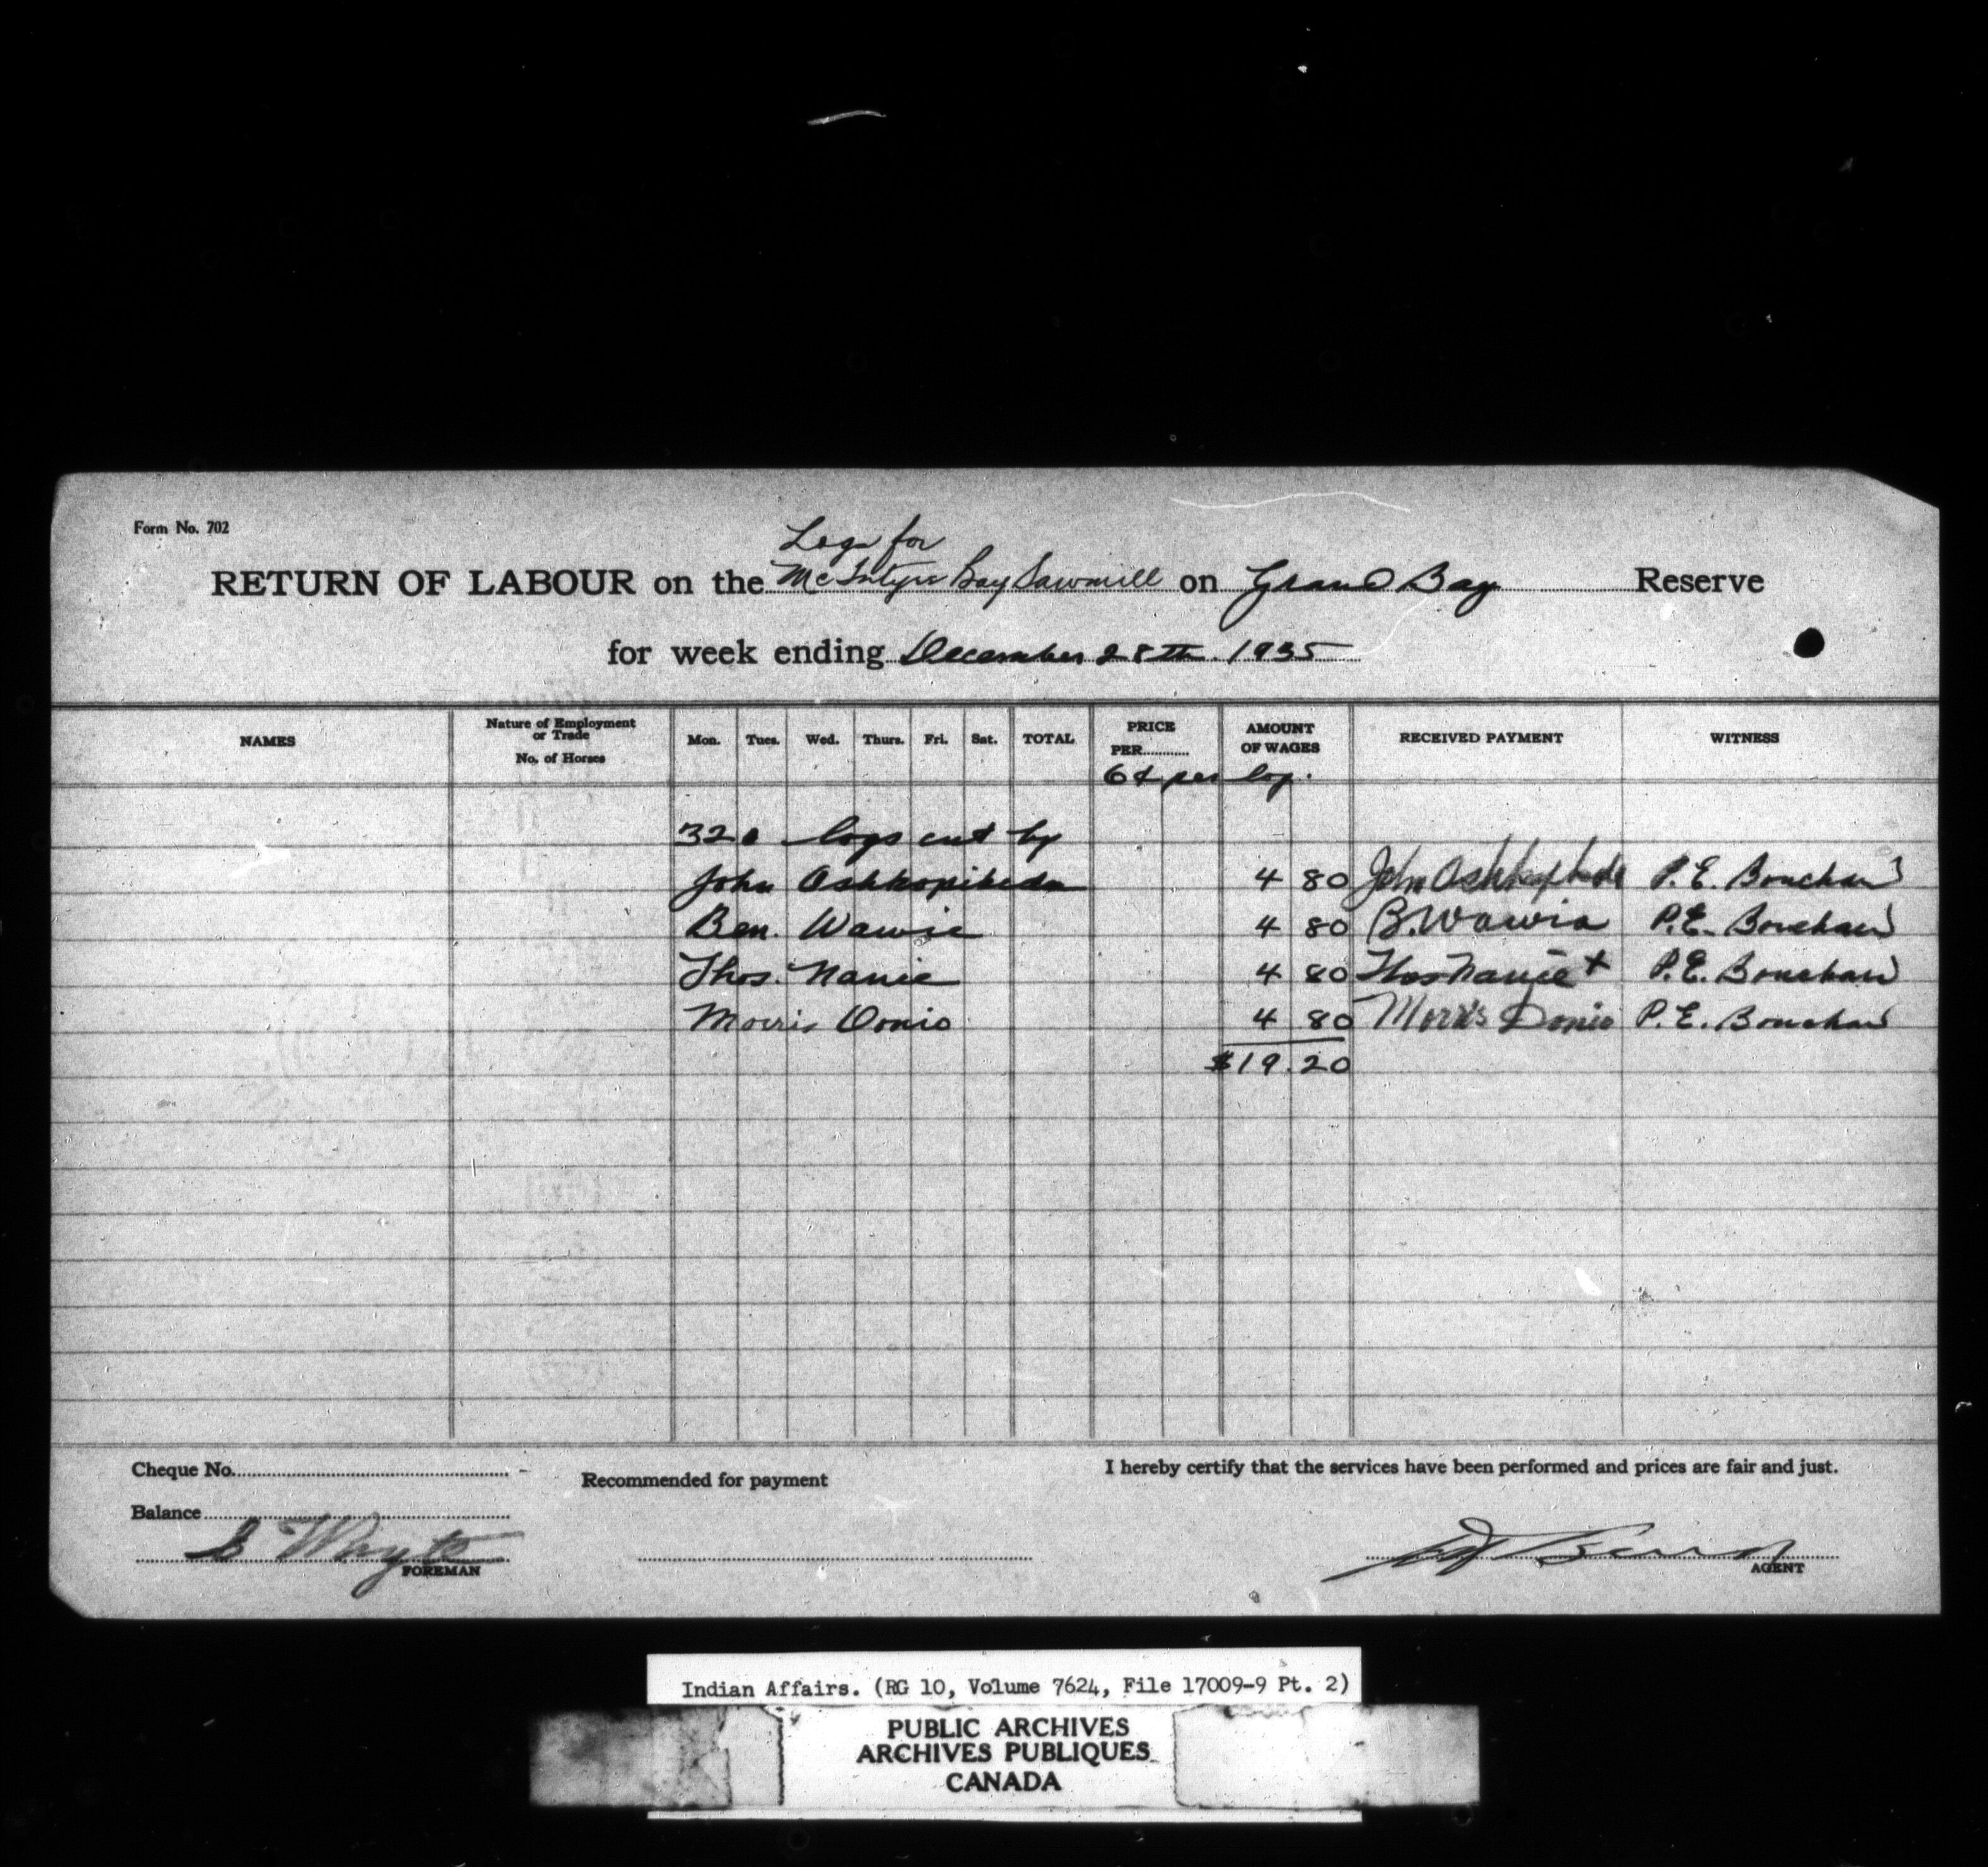 Form No. 702
Logs for
RETURN OF LABOUR on the McIntyre Bay Sawmill on Grand Bay Reserve
for week ending December 28th. 1935
NAMES Nature of Employment or Trade No. of Horses Mon. Tues. Wed. Thurs. Fri. Sat. TOTAL PRICE PER AMOUNT OF WAGES RECEIVED PAYMENT WITNESS
6¢ per log.
320 logs cut by
John 4 80 John P.E.
Ben. Wawie 4 80 B. Wawia P.E.
Thos. Nanie 4 80 Thos Nanie + P.E.
Morris Donio 4 80 Morris Donio P.E.
$19.20
Cheque No. Recommended for payment I hereby certify that the services have been performed and prices are fair and just.
Balance
FOREMAN AGENT
Indian Affairs. (RG 10, Volume 7624, File 17009-9 Pt. 2)
PUBLIC ARCHIVES
ARCHIVES PUBLIQUES
CANADA